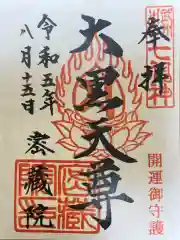 奉拝
大黒天尊
開運御守護
令和五年
八月十五日
密蔵院